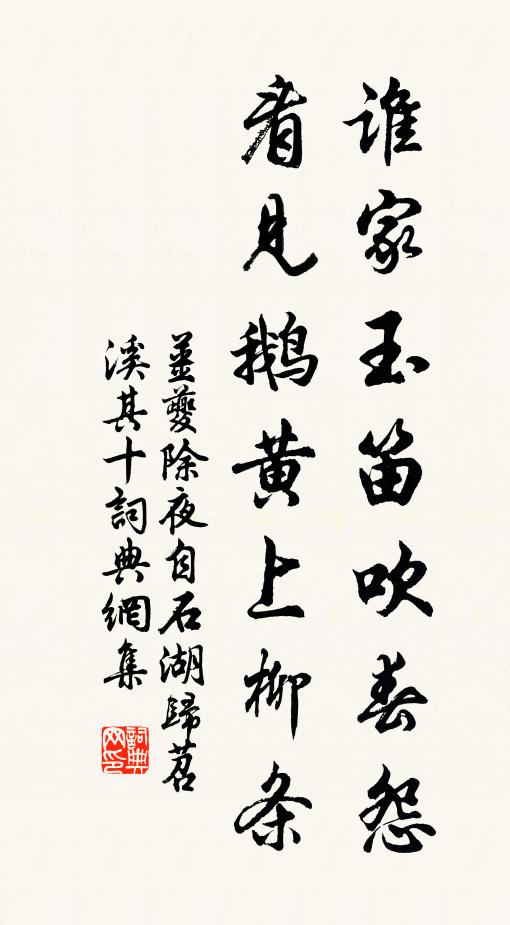 谁家玉笛吹春怨
看见鹅黄上柳条
姜夔除夜自石湖歸苕
溪其十詞典網集
詞典
网印